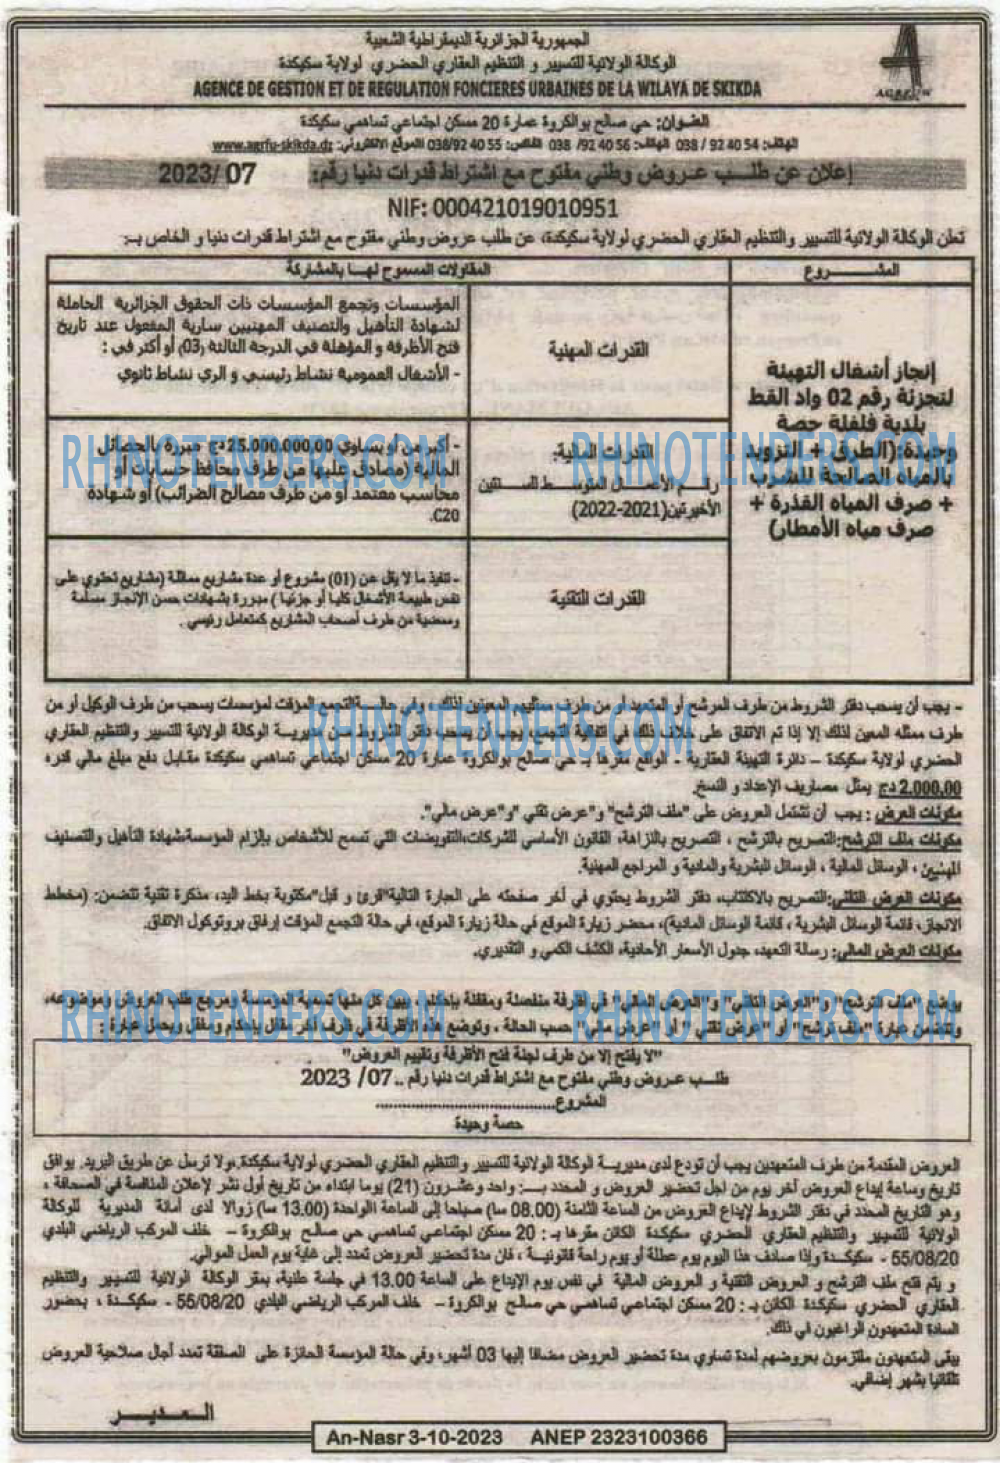 الجمهورية الجزائرية الديمقراطية الشعبية
الوكالة الولائية للتسيير و التنظيم العقاري الحضري لولاية سكيكدة
AGENCE DE GESTION ET DE REGULATION FONCIERES URBAINES DE LA WILAYA DE SKIKDA
العنوان: حي صالح بوالكروة عمارة 20 مسكن اجتماعي تساهمي سكيكدة
الهاتف: 54 40 92 / 038 الهاتف: 56 40 92/ 038 الفاكس: 55 40 038/92 الموقع الالكتروني: www.agrfu-skikda.dz
إعلان عن طلب عروض وطني مفتوح مع اشتراط قدرات دنيا رقم: 07 /2023
NIF: 000421019010951
تعلن الوكالة الولائية للتسيير والتنظيم العقاري الحضري لولاية سكيكدة، عن طلب عروض وطني مفتوح مع اشتراط قدرات دنيا و الخاص بـ:
المشـــروع
المقاولات المسموح لها بالمشاركة
إنجاز أشغال التهيئة
لتجزئة رقم 02 واد القط
بلدية فلفلة حصة
وحيدة:(الطرق + التزويد
بالمياه الصالحة للشرب
+ صرف المياه القذرة +
صرف مياه الأمطار)
القدرات المهنية
المؤسسات وتجمع المؤسسات ذات الحقوق الجزائرية الحاملة
لشهادة التأهيل والتصنيف المهنيين سارية المفعول عند تاريخ
فتح الأظرفة و المؤهلة في الدرجة الثالثة (03) أو أكثر في :
- الأشغال العمومية نشاط رئيسي و الري نشاط ثانوي
القدرات المالية:
رقـم الأعمـال المتوسط للسنتين
الأخيرتين(2021-2022)
- أكبر من أو يساوي 25.000.000,00 دج مبررة بالحصائل
المالية (مصادق عليها من طرف محافظ حسابات أو
محاسب معتمد أو من طرف مصالح الضرائب) أو شهادة
C20.
القدرات التقنية
- تنفيذ ما لا يقل عن (01) مشروع أو عدة مشاريع مماثلة (مشاريع تحتوي على
نفس طبيعة الأشغال كليا أو جزئيا ) مبررة بشهادات حسن الإنجاز مسلمة
وممضية من طرف أصحاب المشاريع كمتعامل رئيسي .
RHINOTENDERS.COM RHINOTENDERS.COM
- يجب أن يسحب دفتر الشروط من طرف المرشح أو المتعهد أو من طرف ممثليهم المعينين لذلك. وفي حالة التجمع المؤقت لمؤسسات يسحب من طرف الوكيل أو من
طرف ممثله المعين لذلك إلا إذا تم الاتفاق على خلاف ذلك في اتفاقية التجمع، يجب أن يسحب دفتر الشروط من مديرية الوكالة الولائية للتسيير والتنظيم العقاري
الحضري لولاية سكيكدة – دائرة التهيئة العقارية - الواقع مقرها بـ حي صالح بوالكروة عمارة 20 مسكن اجتماعي تساهمي سكيكدة مقابل دفع مبلغ مالي قدره
2.000,00 دج يمثل مصاريف الإعداد و النسخ.
RHINOTENDERS.COM
مكونات العرض : يجب أن تشتمل العروض على "ملف الترشح" و"عرض تقني" و"عرض مالي".
مكونات ملف الترشح:التصريح بالترشح ، التصريح بالنزاهة، القانون الأساسي للشركات،التفويضات التي تسمح للأشخاص بإلزام المؤسسة،شهادة التأهيل والتصنيف
المهنيين ، الوسائل المالية ، الوسائل البشرية والمادية و المراجع المهنية.
مكونات العرض التقني:التصريح بالاكتتاب، دفتر الشروط يحتوي في آخر صفحته على العبارة التالية"قرئ و قبل"مكتوبة بخط اليد، مذكرة تقنية تتضمن: (مخطط
الانجاز، قائمة الوسائل البشرية ، قائمة الوسائل المادية)، محضر زيارة الموقع في حالة زيارة الموقع، في حالة التجمع المؤقت إرفاق بروتوكول الاتفاق.
مكونات العرض المالي: رسالة التعهد، جدول الأسعار الأحادية، الكشف الكمي و التقديري.
يوضع "ملف الترشح" و"العرض التقني" و"العرض المالي" في أظرفة منفصلة ومقفلة بإحكام، يبين كل منها تسمية المؤسسة ومرجع طلب العروض وموضوعه،
وتتضمن عبارة "ملف ترشح" أو "عرض تقني" أو "عرض مالي" حسب الحالة ، وتوضع هذه الأظرفة في ظرف آخر مقفل بإحكام ومغفل ويحمل عبارة :
RHINOTENDERS.COM RHINOTENDERS.COM
"لا يفتح إلا من طرف لجنة فتح الأظرفة وتقييم العروض"
طلـب عـروض وطني مفتوح مع اشتراط قدرات دنيا رقم ..07/ 2023
المشروع........................................
حصة وحيدة
العروض المقدمة من طرف المتعهدين يجب أن تودع لدى مديرية الوكالة الولائية للتسيير والتنظيم العقاري الحضري لولاية سكيكدة.ولا ترسل عن طريق البريد. يوافق
تاريخ وساعة إيداع العروض آخر يوم من اجل تحضير العروض و المحدد بـ: واحد وعشرون (21) يوما ابتداء من تاريخ أول نشر لإعلان المنافسة في الصحافة ،
وهو التاريخ المحدد في دفتر الشروط لإيداع العروض من الساعة الثامنة (08.00 سا) صباحا إلى الساعة الواحدة (13.00 سا) زوالا لدى أمانة المديرية للوكالة
الولائية للتسيير والتنظيم العقاري الحضري سكيكدة الكائن مقرها بـ : 20 مسكن اجتماعي تساهمي حي صالح بوالكروة – خلف المركب الرياضي البلدي
55/08/20 - سكيكدة وإذا صادف هذا اليوم يوم عطلة أو يوم راحة قانونية ، فان مدة تحضير العروض تمدد إلى غاية يوم العمل الموالي.
و يتم فتح ملف الترشح و العروض التقنية و العروض المالية في نفس يوم الإيداع على الساعة 13.00 في جلسة علنية، بمقر الوكالة الولائية للتسيير والتنظيم
العقاري الحضري سكيكدة الكائن بـ : 20 مسكن اجتماعي تساهمي حي صالح بوالكروة – خلف المركب الرياضي البلدي 55/08/20 - سكيكدة ، بحضور
السادة المتعهدون الراغبون في ذلك.
يبقى المتعهدون ملتزمون بعروضهم لمدة تساوي مدة تحضير العروض مضافا إليها 03 أشهر، وفي حالة المؤسسة الحائزة على الصفقة تمدد آجال صلاحية العروض
تلقائيا بشهر إضافي.
المديـر
An-Nasr 3-10-2023 ANEP 2323100366